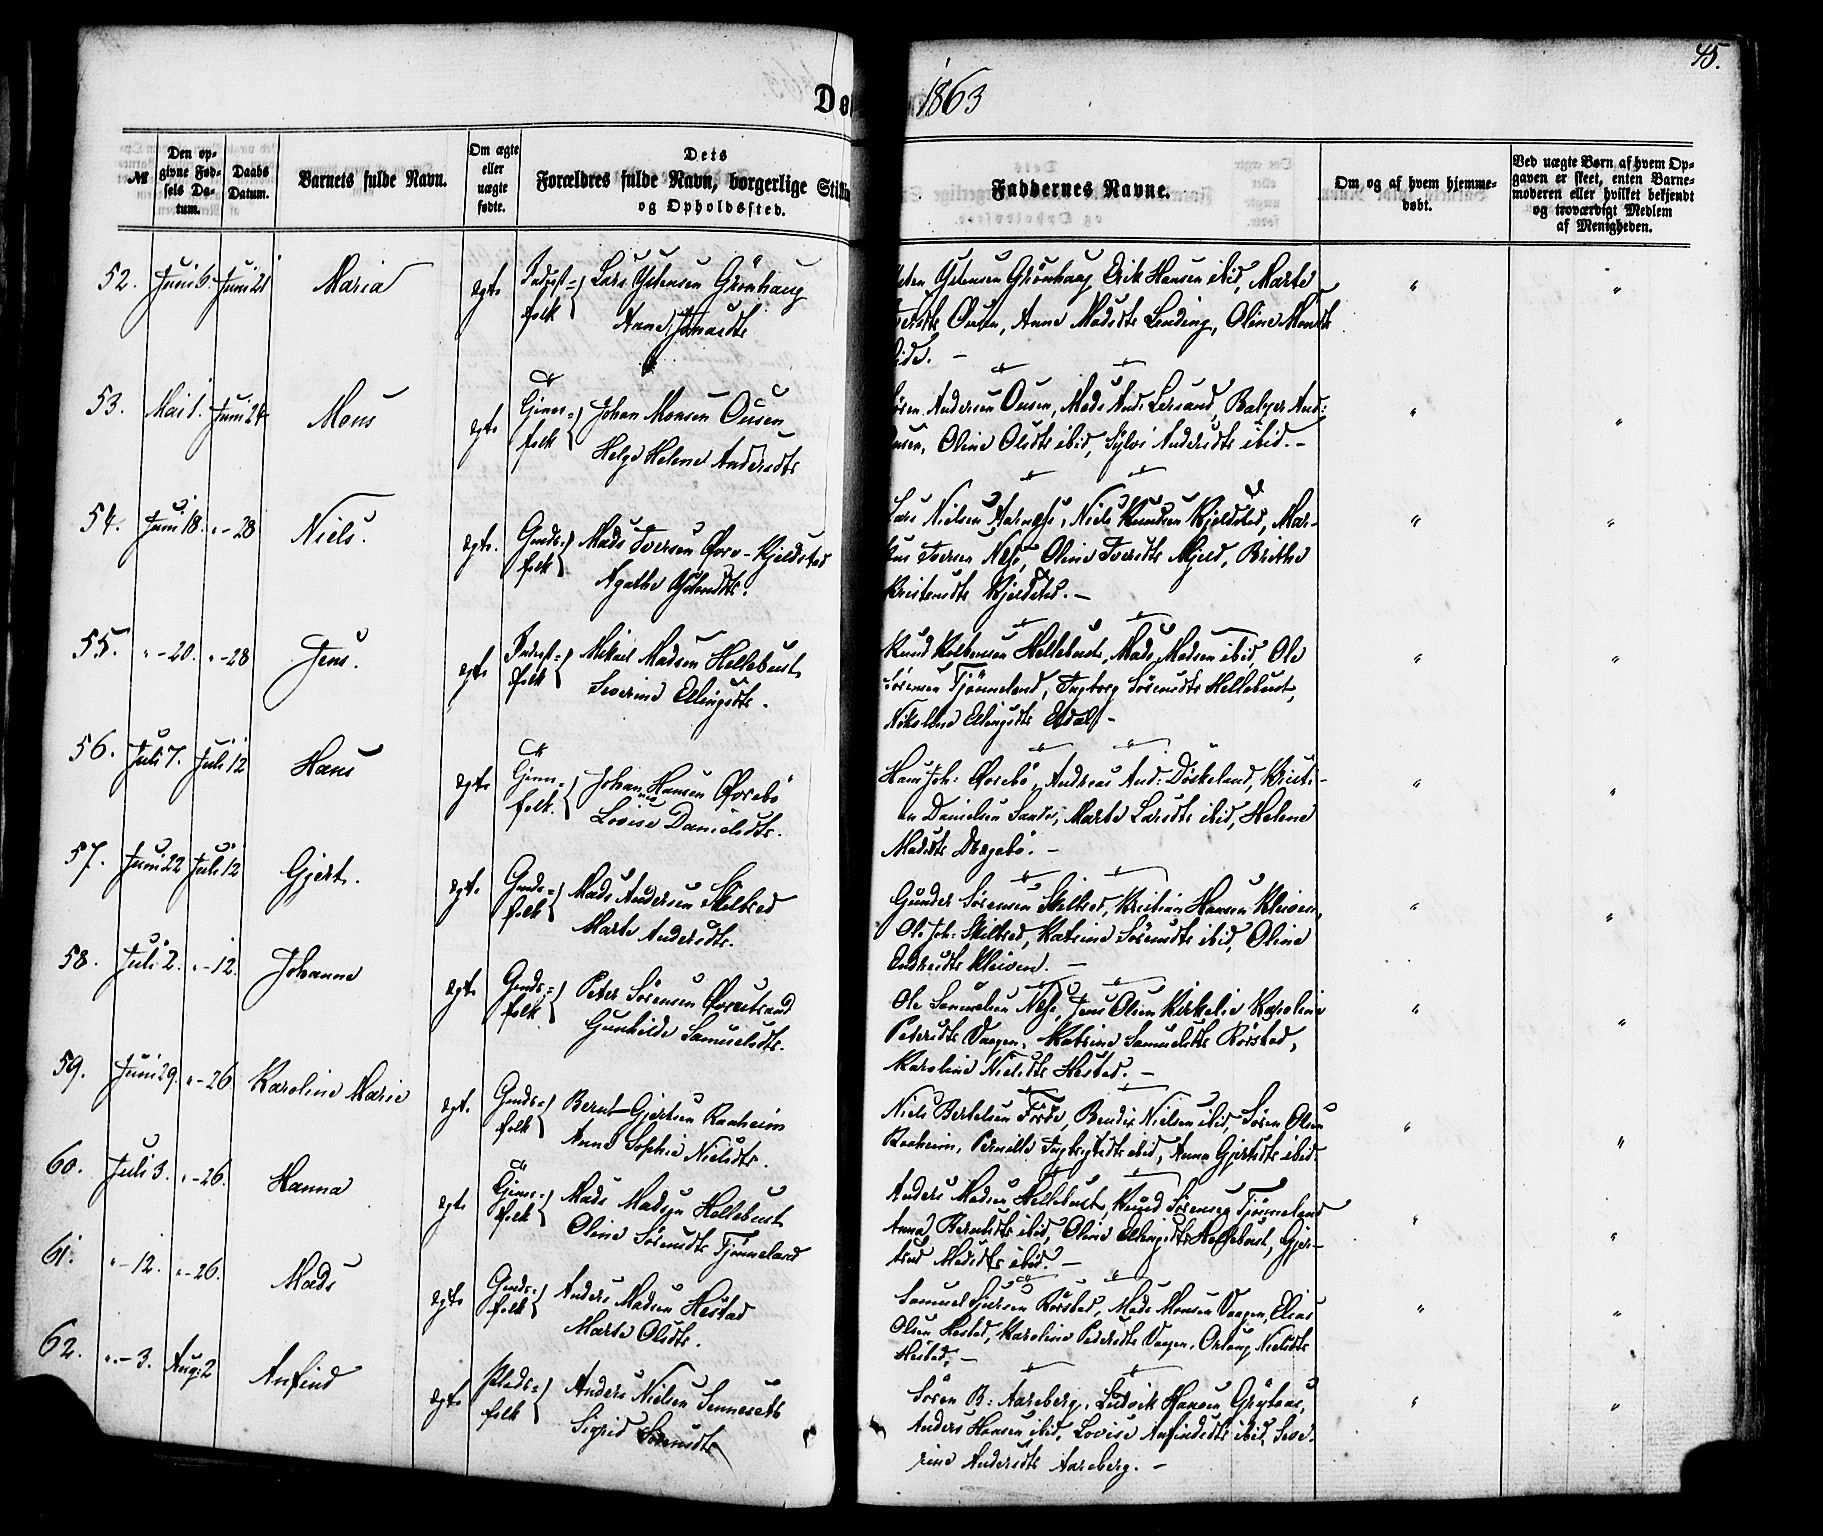 45.
Dø 1863
№ | Den opgivne Fødsels Datum. | Daabs Datum. | Barnets fulde Navn. | Om ægte eller uægte fødte. | Dets Forældres fulde Navn, borgerlige Stilli og Opholdssted. | Faddernes Navne. | Om og af hvem hjemmedøbt. | Ved uægte Børn af hvem Opgaven er skeet, enten Barnemoderen eller hvilket bekjendt og troværdigt Medlem af Menigheden.
52. Juni 6. Juni 21 Maria ægte Indust= Lars Ystensen Grönhaug
folk Anne
sten Ystensen Grönhaug, Erik Hansen ibid, Marte
Ousen, Anne Madsdtr Lending, Oline Monsdtr
ibid. — " "
53. Mai 1. Juni 24 Mons ægte Gjmr= Johan Monsen Ousen
folk Helge Helene Andersdtr
Sören Andersen Ousen, Mads And: Lersand, Balzer And:
Ousen, Oline Olsdtr ibid, Sylvi Andersdtr ibid. — " "
54. Juni 18. " - 28 Niels. ægte. Gmds= Mads Iversen Øvre-Kjeldstad
folk Agathe Ystendtr.
Lars Nielsen Aarnæs, Niels Knudsen Kjeldstad, Mar-
kus Iversen Næs, Oline Iversdtr Mjeld, Brithe
Kristensdtr Kjeldstad. — " "
55. " - 20. " - 28 Jens. ægte Indust= Mikael Madsen Hellebust
folk Severine Ellingsdtr.
Knud Hellebust, Mads Madsen ibid, Ole
Sörensen Tjönneland, Ingborg Sörensdtr Hellebust,
Nikoline Ellingsdtr Eldal — " "
56. Juli 7. Juli 12 Hans ægte Gjmr= Johan Hansen Øvrebö
folk. Lovise Danielsdtr.
Hans Joh: Øvrebö, Andreas And: Döskeland, Kristi-
an Danielsen Sande, Marte Larsdtr ibid, Helene
Madsdtr Dregebö. — " "
57. Juni 22 Juli 12 Gjert. ægte Gmds= Mads Andersen Skilbred
folk Marte Andersdtr.
Gunder Sörensen Skilbred, Kristian Hansen Kleiven,
Ole Joh: Skilbred, Katrine Sörensdtr ibid, Oline
Andersdtr Kleiven. — " "
58. Juli 2. " - 12. Johanne ægte Gmds= Peter Sörensen Øvrestrand
folk Gunhilde Samuelsdtr.
Ole Samuelsen Næs, Jens Olsen Kirkelie, Karoline
Petersdtr Vaagen, Katrine Samuelsdtr Rörstad,
Karoline Nielsdtr Hestad. — " "
59. Juni 29. " - 26 Karoline Marie ægt. Gmds= Bernt Gjertsen Raaheim
folk Anne Sophie Nielsdtr.
Niels Bertelsen Förde, Bendix Nielsen ibid, Sören Olsen
Raaheim, Pernille ibid, Anna Gjertsdtr ibid. " "
60. Juli 3. " - 26. Hanna ægte Gjmr= Mads Madsen Hellebust
folk Oline Sörensdtr Tjönneland
Anders Madsen Hellebust, Knud Sörensen Tjönneland
Anna Berntsdtr ibid, Oline Ellingsdtr Hellebust, Gjer-
trud Madsdtr ibid. — " "
61. " - 12. " - 26. Mads ægte Gmds= Anders Madsen Hestad
folk Marte Olsdtr.
Samuel Rörstad, Mads Monsen Vaagen, Elias
Olsen Hestad, Karoline Petersdtr Vaagen, Nielsdtr
Hestad, — " "
62. " - 3. Aug: 2 Anfind ægte Plads= Anders Nielsen Senneseth
folk Sigrid Sörensdtr
Sören B: Aareberg, Ludvik Hansen Grytaas,
Anders Hansen ibid, Lovise Anfindsdtr ibid, Seve-
rine Andersdtr Aareberg. — " "